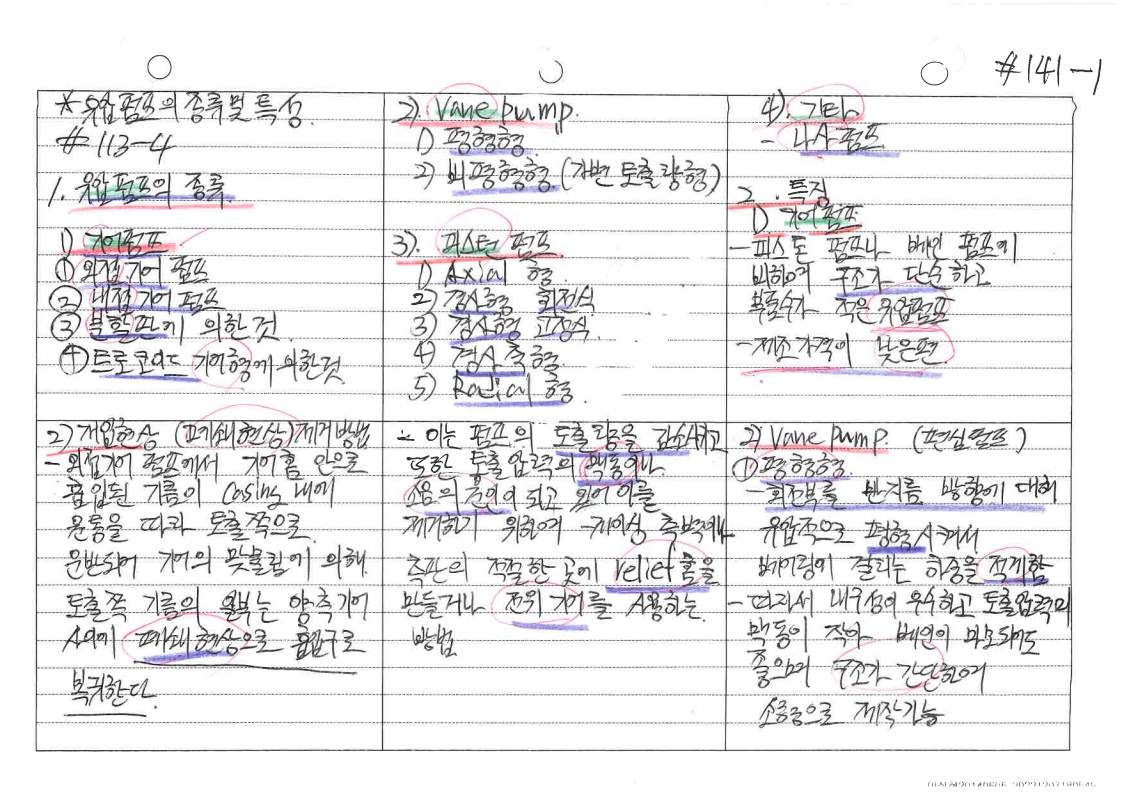 #141-1
* 유압펌프의 종류 및 특성.
# 113-4
1. 유압펌프의 종류.
1) 기어펌프
① 외접기어 펌프
② 내접기어 펌프
③ 분할판에 의한것
④ 트로코이드 기어형에 의한것
2). Vane pump.
1) 평형형
2) 비평형형 (가변 토출량형)
3). 피스턴 펌프
1) Axial 형
2) 경사형 회전식
3) 경사형 고정식
4) 경사축형
5) Radial 형
4). 기타
- 나사펌프
2. 특징
1) 기어펌프
- 피스톤 펌프나 베인 펌프에
비하여 구조가 단순하고
부품수가 적은 유압펌프
- 제조가격이 낮은편
2) 저입현상 (폐쇄현상) 제거방법
- 외접기어 펌프에서 기어홈 안으로
흡입된 기름이 Casing 내에
운동을 따라 토출쪽으로
운반되어 기어의 맞물림에 의해.
토출쪽 기름의 일부는 양측기어
사이에 폐쇄현상으로 흡입구로
복귀한다.
- 이는 펌프의 토출량을 감소시키고
또한 토출압력의 맥동이나
소음의 원인이 되고 있어 이를
제거하기 위하여 케이싱 측벽이나
측판의 적절한 곳에 relief홈을
만들거나 전위기어를 사용하는.
방법
2) Vane pump. (편심펌프)
① 평형형
- 회전부를 반지름 방향에 대해
유압적으로 평형시켜서
베어링에 걸리는 하중을 적게함
- 따라서 내구성이 우수하고 토출압력의
맥동이 작아 베인이 마모되어도
좋으며 구조가 간단하여
소형으로 제작가능